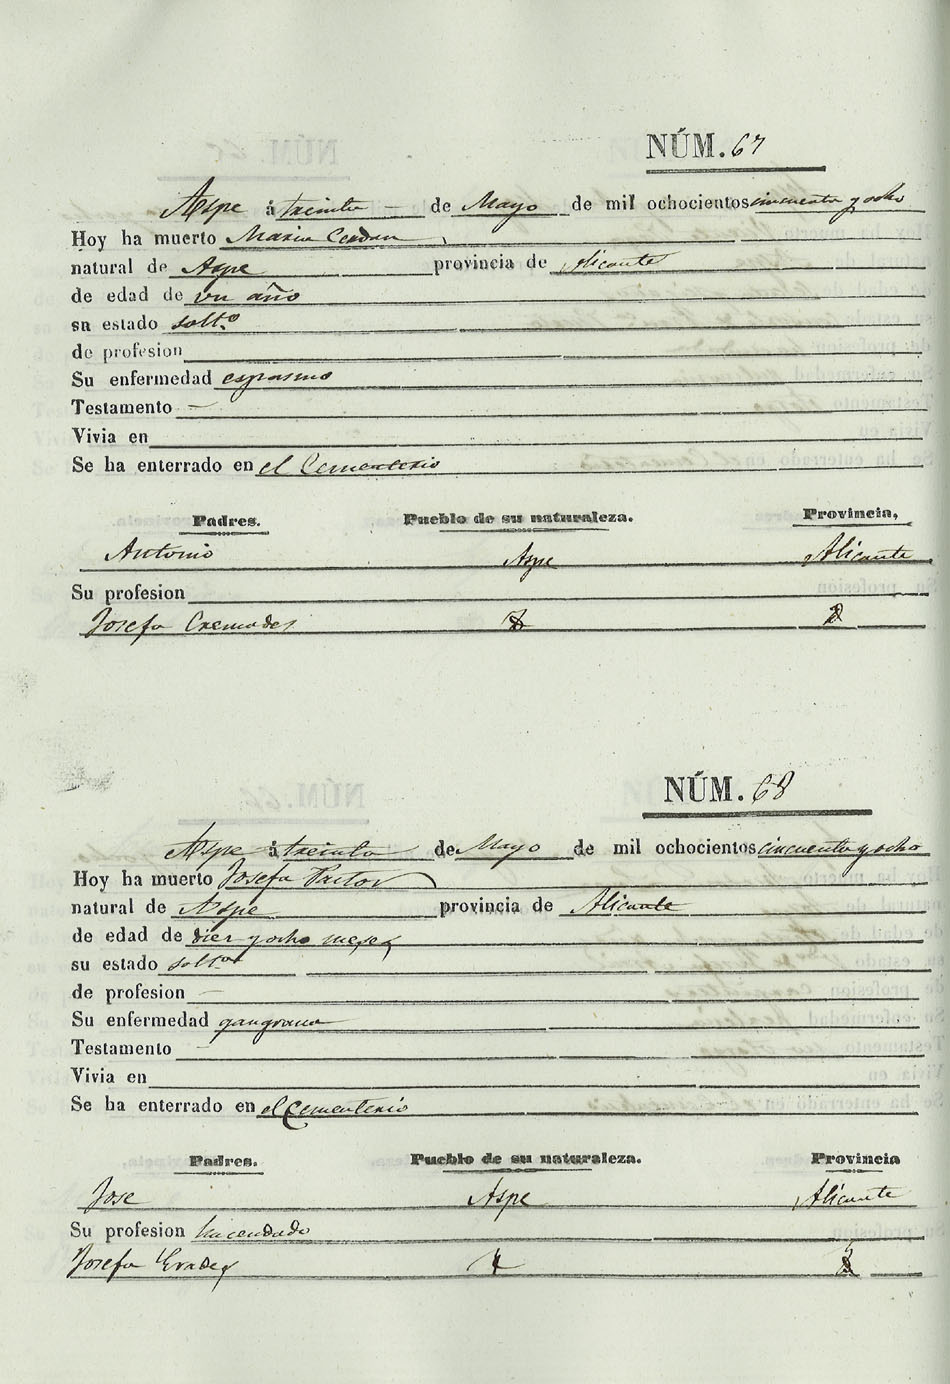 NÚM. 67
Aspe á treinta de Mayo de mil ochocientos cincuenta y ocho
Hoy ha muerto Maria Cerdan
natural de Aspe provincia de Alicante
de edad de un año
su estado solt.º
de profesion
Su enfermedad espasmo
Testamento —
Vivia en
Se ha enterrado en el Cementerio
Padres. Pueblo de su naturaleza. Provincia,
Antonio Aspe Alicante
Su profesion
Josefa Cremades
NÚM. 68
Aspe á treinta de Mayo de mil ochocientos cincuenta y ocho
Hoy ha muerto Josefa Pastor
natural de Aspe provincia de Alicante
de edad de diez y ocho meses
su estado solt.ª
de profesion —
Su enfermedad gangrana
Testamento
Vivia en
Se ha enterrado en el Cementerio
Padres. Pueblo de su naturaleza. Provincia
Jose Aspe Alicante
Su profesion hacendado
Josefa